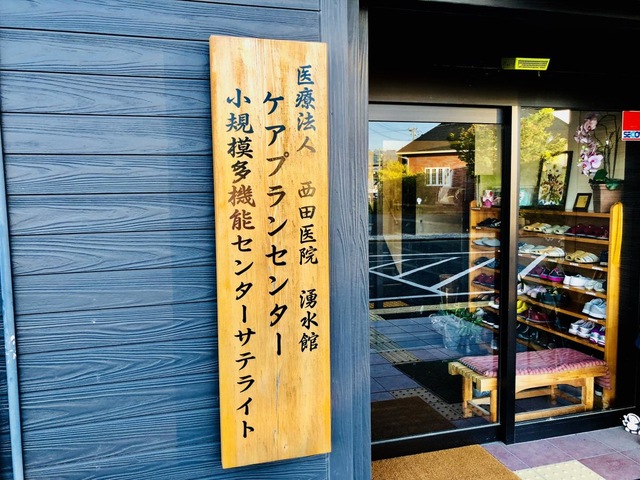 医療法人 西田医院 湧水館
ケアプランセンター
小規模多機能センターサテライト